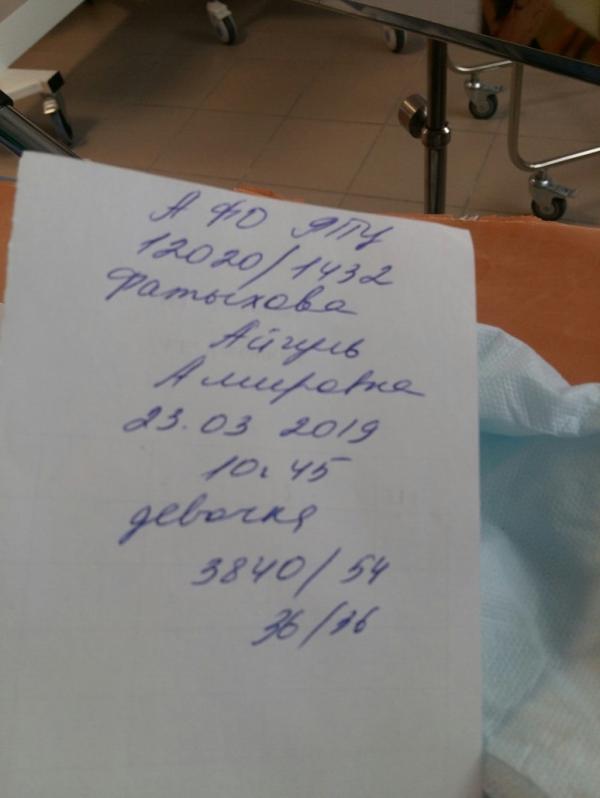 А ФО ЯПУ
12020/1432
Фатыхова
Айгуль
Амировна
23.03 2019
10ч 45
девочка
3840/54
36/36